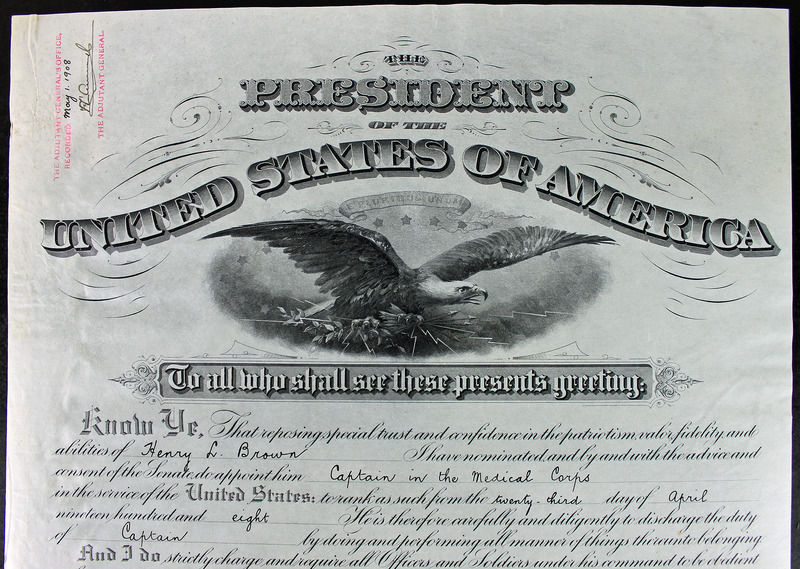 THE ADJUTANT GENERAL'S OFFICE,
RECORDED May 1. 1908
THE ADJUTANT GENERAL.
THE
PRESIDENT
OF THE
UNITED STATES OF AMERICA
E PLURIBUS UNUM
To all who shall see these presents greeting:
Know Ye, That reposing special trust and confidence in the patriotism, valor, fidelity, and
abilities of Henry L. Brown I have nominated, and by and with the advice and
consent of the Senate, do appoint him Captain in the Medical Corps
in the service of the United States: to rank as such from the twenty-third day of April
nineteen hundred and eight He is therefore carefully and diligently to discharge the duty
of Captain by doing and performing all manner of things thereunto belonging
And I do strictly charge, and require all Officers and Soldiers under his command to be obedient